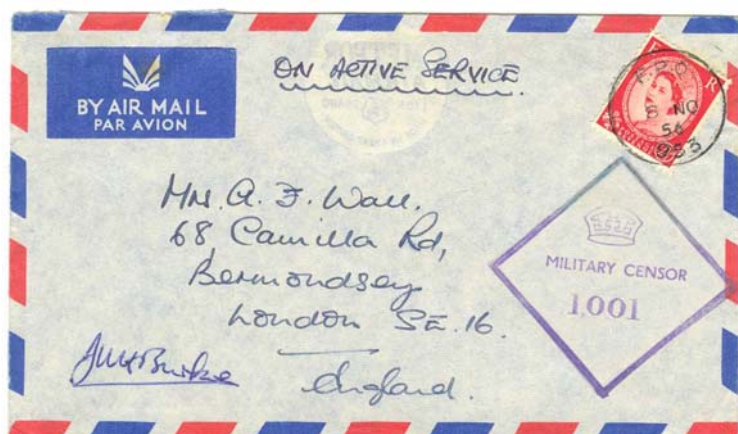 BY AIR MAIL
PAR AVION
ON ACTIVE SERVICE.
F.P.O.
8 NO
56
953
E R
68 Camilla Rd,
Bermondsey
London SE.16.
England.
MILITARY CENSOR
1,001